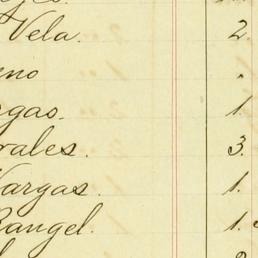 Vela. 2.
no .
gas. 1.
rales. 3.
Vargas. 1.
Rangel. 1.